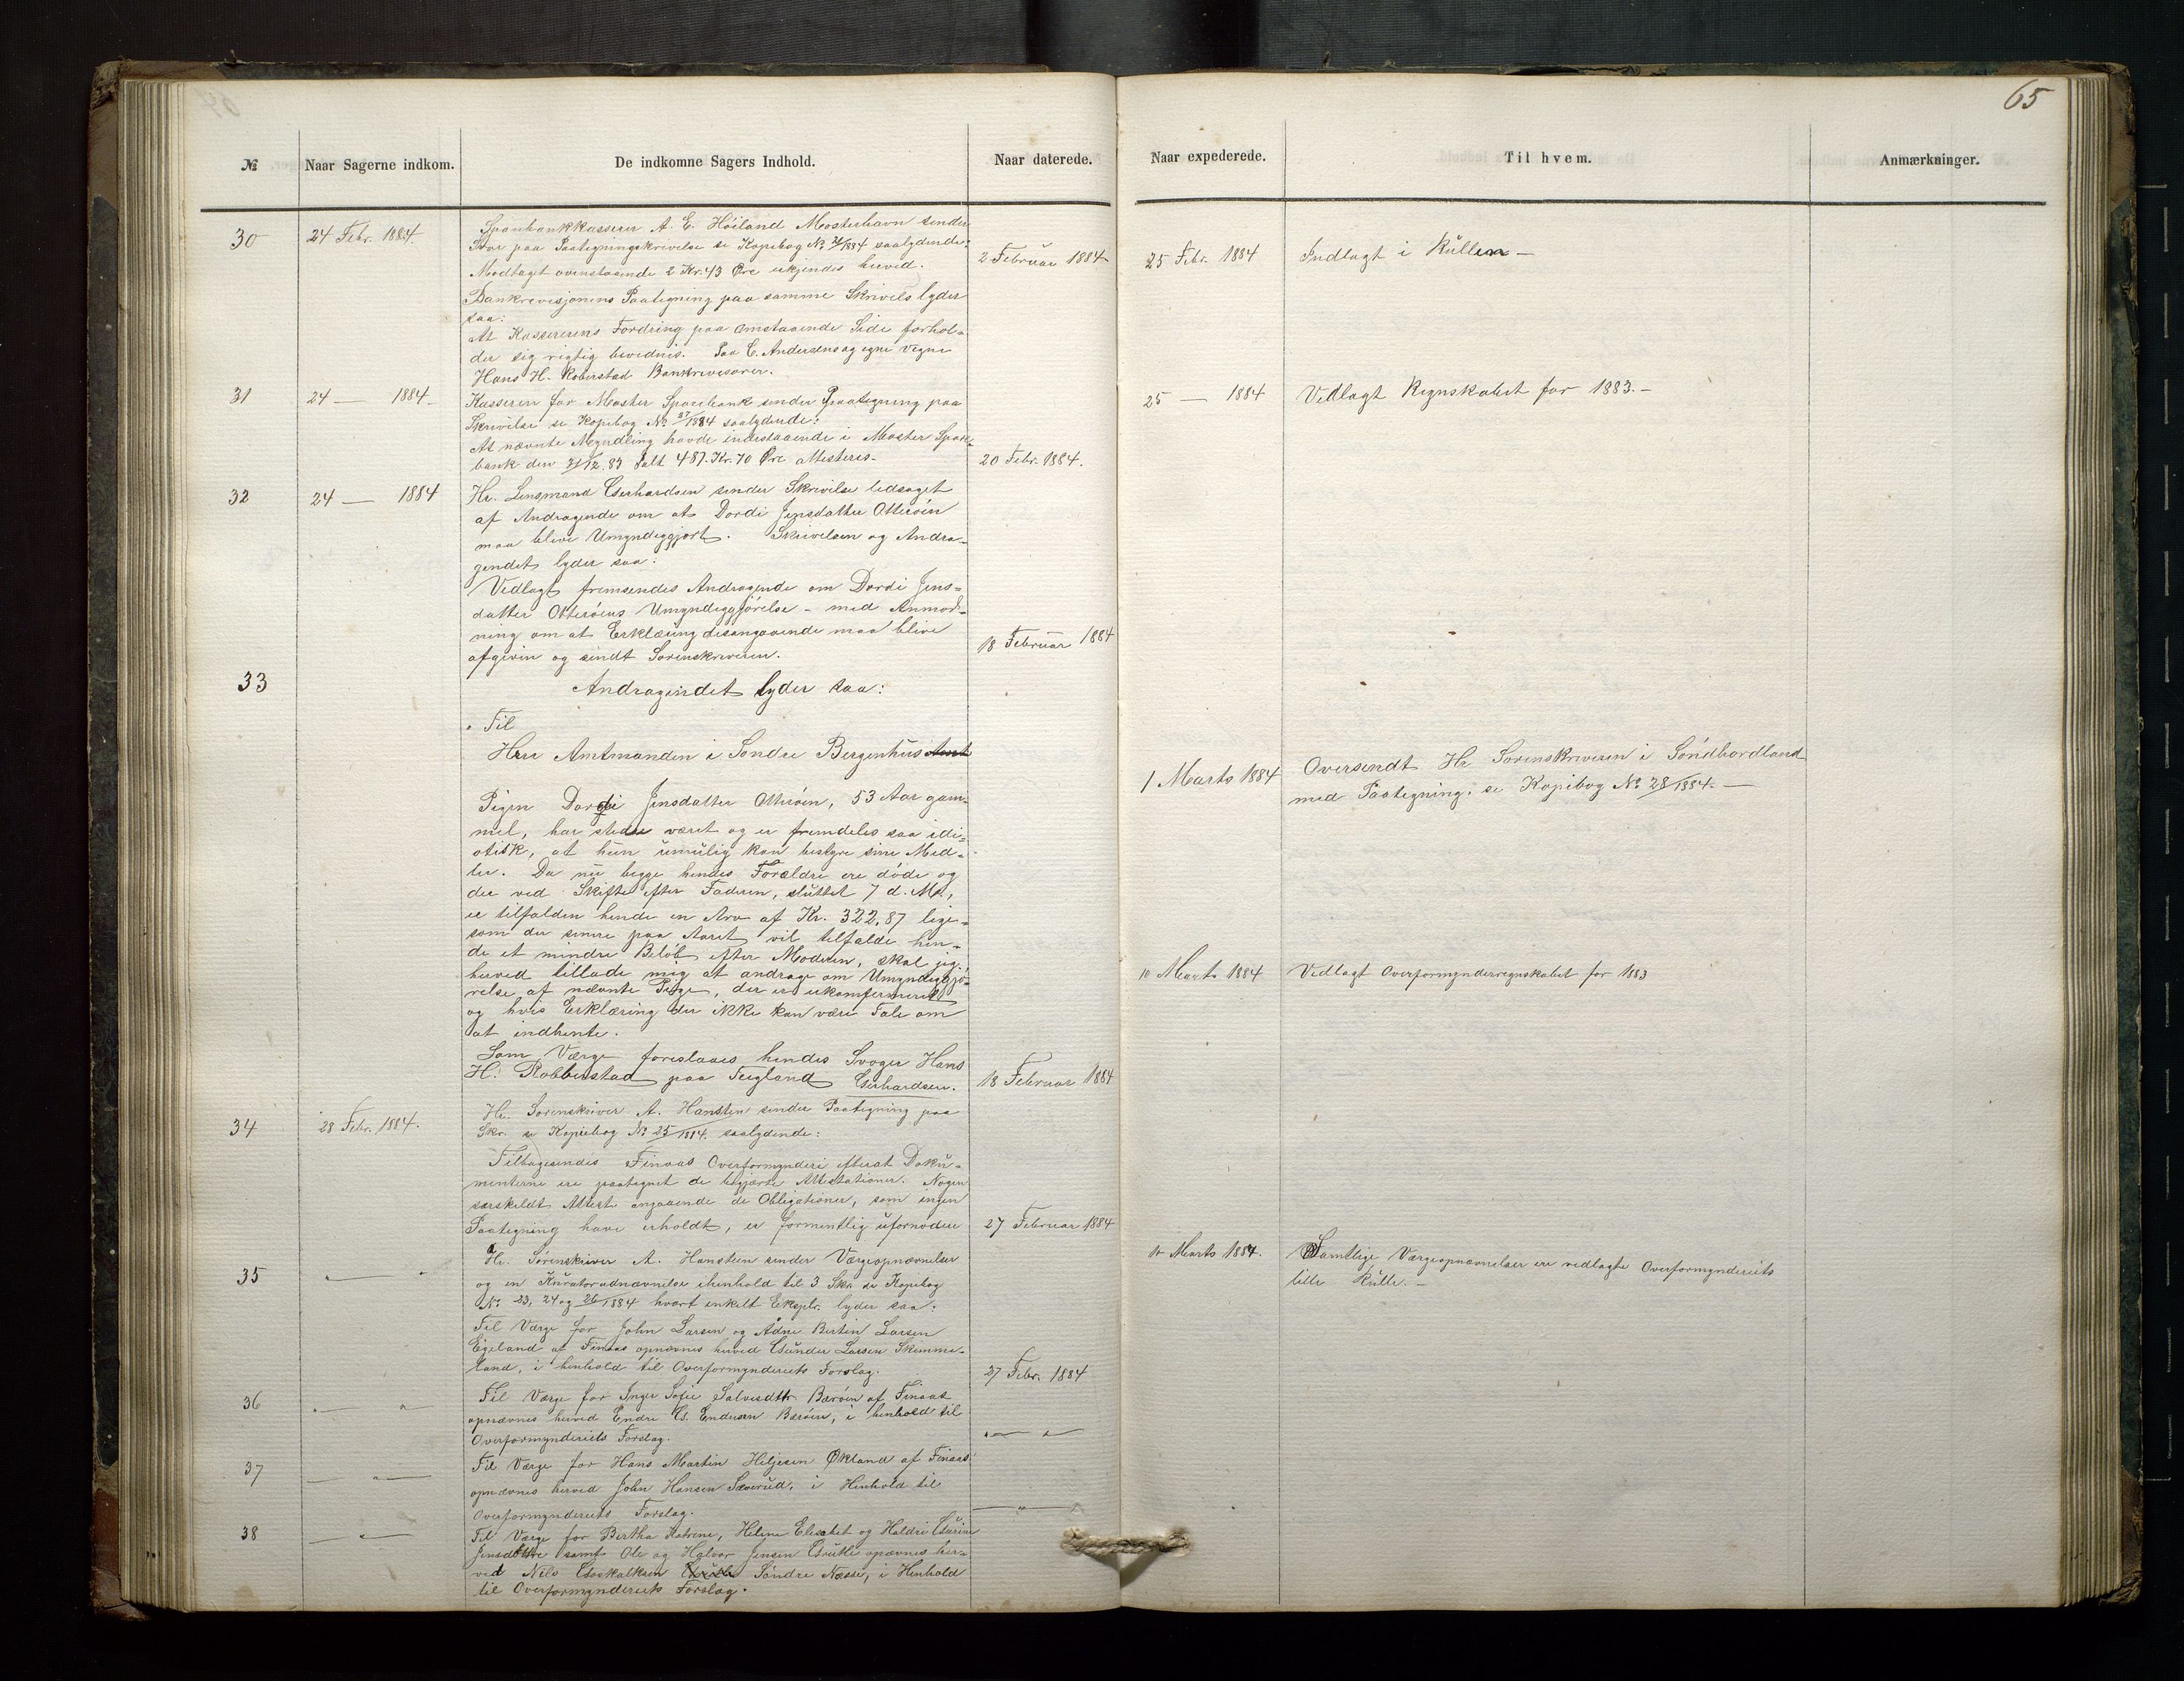 65
№
Naar Sagerne indkom.
De indkomne Sagers Indhold.
Naar daterede.
Naar expederede.
Til hvem.
Anmærkninger.
30
24 Febr. 1884
Sparebankkasserer A. E. Höiland Mosterhavn sender
Svar paa Paategningskrivelse se Kopibog № /1884 saalydende:
Modtaget ovenstaaende 2 Kr. 43 Øre erkjendes herved.
2 Februar 1884
25 Febr. 1884
Indlagt i Rullen –
Bankrevisjonens Paategning paa samme Skrivels lyder
saa:
At Kassererens Fordring paa omstaaende Side forhol-
der sig rigtig bevidnes. Paa C. Andersens og egne Vegne
Hans H. Roberstad Bankrevisorer.
31
24 — 1884
Kasseren for Moster Sparebank sender Paategning paa
Skrivelse se Kopibog № 37/1884 saalydende:
At nævnte Myndling havde indestaaende i Moster Spare-
bank den 31/12. 83 Talt 487. Kr. 70 Øre attesteres.
20 Febr. 1884.
25 — 1884
Vedlagt Regnskabet for 1883. –
32
24 — 1884
Hr. Lensmand Gerhardsen sender Skrivelse ledsaget
af Andragende om at Dordi Jensdatter Otteröen
maa blive Umyndiggjort. Skrivelsen og Andra-
gendet lyder saa:
Vedlagt fremsendes Andragende om Dordi Jens-
datter Otteröens Umyndiggjörelse – med Anmod-
ning om at Erklæring desangaaende maa blive
afgiven og sendt Sorenskriveren.
18 Februar 1884
33
Andragendet lyder saa:
Til
Herr Amtmanden i Söndre Bergenhus Amt
Pigen Dordi Jensdatter Otteröen, 53 Aar gam-
mel, har stedse været og er fremdeles saa idi-
otisk, at hun umulig kan bestyre sine Mid-
ler. Da nu begge hendes Forældre ere döde og
der ved Skifte efter Faderen, sluttet 7 d. M.,
er tilfalden hende en Arv af Kr. 322,87 lige-
som der senere paa Aaret vil tilfalde hen-
de et mindre Belöb efter Moderen, skal jeg
herved tillade mig at andrage om Umyndiggjö-
relse af nævnte Pige, der er ukonfirmeret
og hvis Erklæring der ikke kan være Tale om
at indhente.
Som Værge foreslaaes hendes Svoger Hans
H. Robberstad paa Teigland Gerhardsen.
18 Februar 1884
1 Marts 1884
Oversendt Hr Sorenskriveren i Söndhordland
med Paategning: se Kopibog № 28/1884. –
10 Marts 1884
Vedlagt Overformynderregnskabet for 1883
34
28 Febr. 1884.
Hr. Sorenskriver A. Hansten sender Paategning paa
Skr. se Kopiebog № 25/1884. saalydende:
Tilbagesendes Finaas Overformynderi efterat Doku-
menterne ere paategnet de begjærte Attestationer. Nogen
særskildt Attest angaaende de Obligationer, som ingen
Paategning have erholdt, er formentlig ufornöden
27 Februar 1884
35
Hr. Sörenskriver A. Hansteen sender Værgeopnævnelser
og en Kuratorudnævnelse ihenhold til 3 Skr. se Kopibog
№ 23, 24 og 26/1884 hvort enkelt Eksplr. lyder saa:
Til Værge for John Larsen og Adne Bertin Larsen
Egeland af Finaas opnævnes herved Gunder Larsen Skimme-
land, i henhold til Overformynderiets Forslag.
27 Febr. 1884
10 Marts 1884.
Samtlige Værgeopnævnelser ere vedlagte Overformynderiets
lille Rulle. –
36
Til Værge for Inger Sofie Salvesdttr Beröen af Finaas
opnævnes herved Endre G. Endresen Beröen, i henhold til
Overformynderiets Forslag.
37
Til Værge for Hans Martin Heljesen Økland af Finaas
opnævnes herved John Hansen Sæverud, i Henhold til
Overformynderiets Forslag.
38
Til Værge for Bertha Katrine, Helene Elisabet og Haldri Gurine
Jensdöttre samt Ole og Halvor Jensen opnævnes her-
ved Nils Söndre Næsse, i Henhold
til Overformynderiets Forslag.